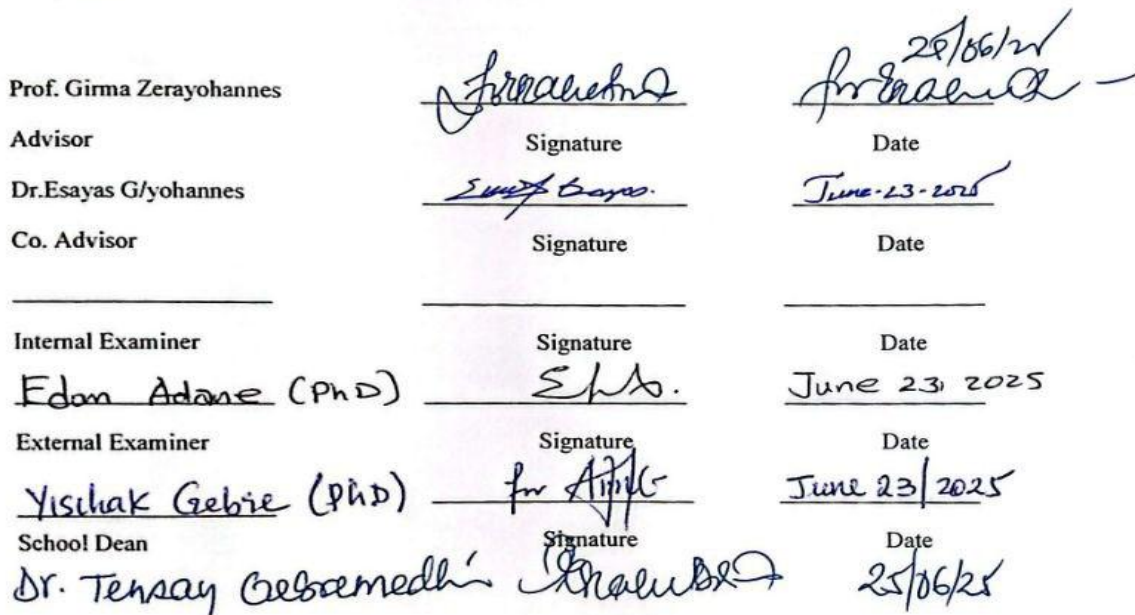 25/06/25
Prof. Girma Zerayohannes
Advisor Signature Date
Dr.Esayas G/yohannes June-23-2025
Co. Advisor Signature Date
Internal Examiner Signature Date
Edom Adane (PhD) June 23, 2025
External Examiner Signature Date
Yischak Gebre (PhD) for June 23/2025
School Dean Signature Date
Dr. Tensay Gebremedhin 25/06/25